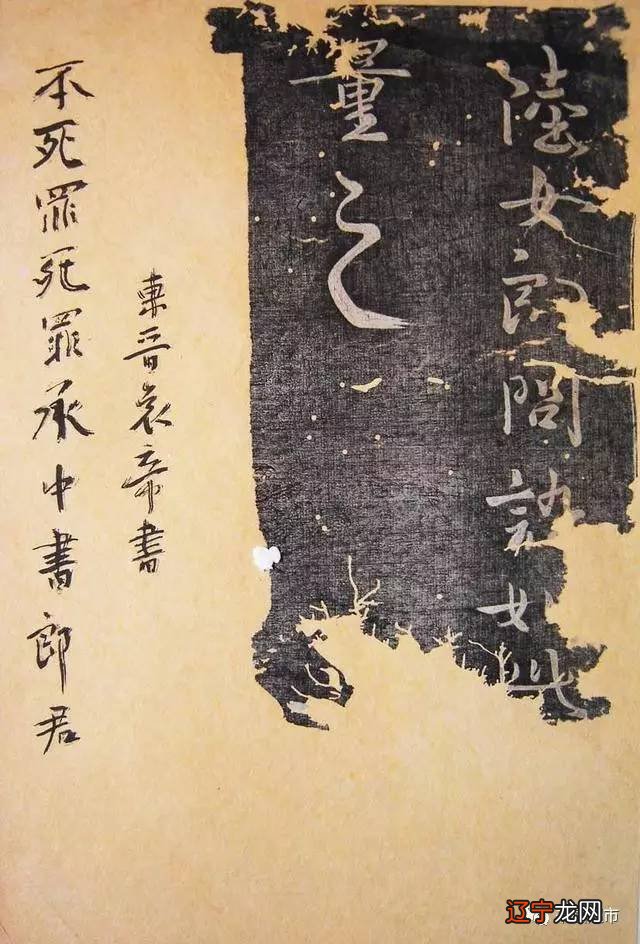 陸女郎問訊如此
量之
東晉哀帝書
不死罪死罪承中書郎君
辽宁龙网
市